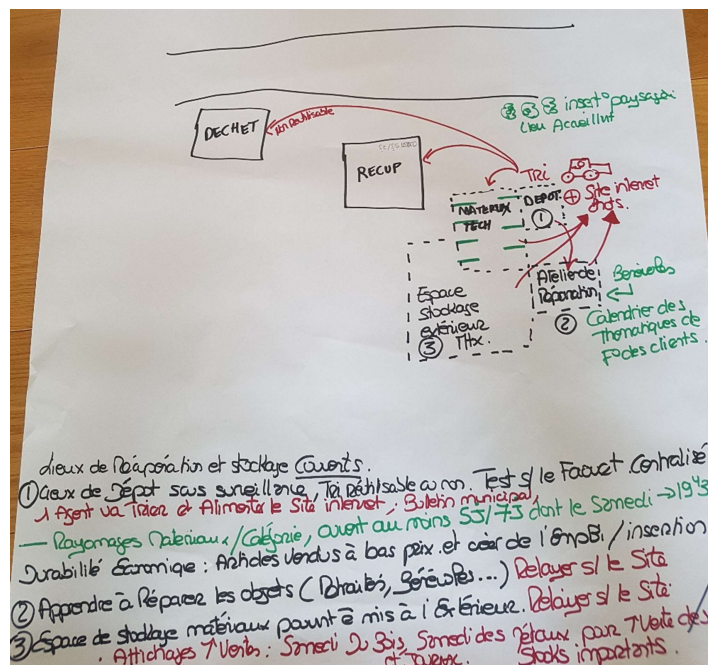 DECHET
Non Réutilisable
RECUP
insert° paysagère
Lieu Accueillant
TRi
MATERIAUX
TECH
DEPOT
①
⊕ Site internet
Atelier de
Réparation
②
Bénévoles
Calendrier des
Thématiques de
F° des clients.
Espace
stockage
extérieur
③
Lieux de Récupération et stockage Couverts.
① Lieux de Dépôt sous surveillance, Tri Réutilisable ou non. Test s/ le Faouet Centralisé
1 Agent va Trier et Alimenter le Site internet, Bulletin municipal,
— Rayonnages Materiaux/Catégorie, ouvert au moins 5J/7J dont le Samedi → 19h
Durabilité Economique : Articles vendus à bas prix et créer de l'Emploi / insertion
② Apprendre à Réparer les objets (Retraités, Bénévoles...) Relayer s/ le Site
③ Espace de stockage matériaux pouvant ê mis à l'Extérieur. Relayer s/ le Site
. Affichages Vente : Samedi Du Bois, Samedi des Métaux pour Vente des
Stocks importants.